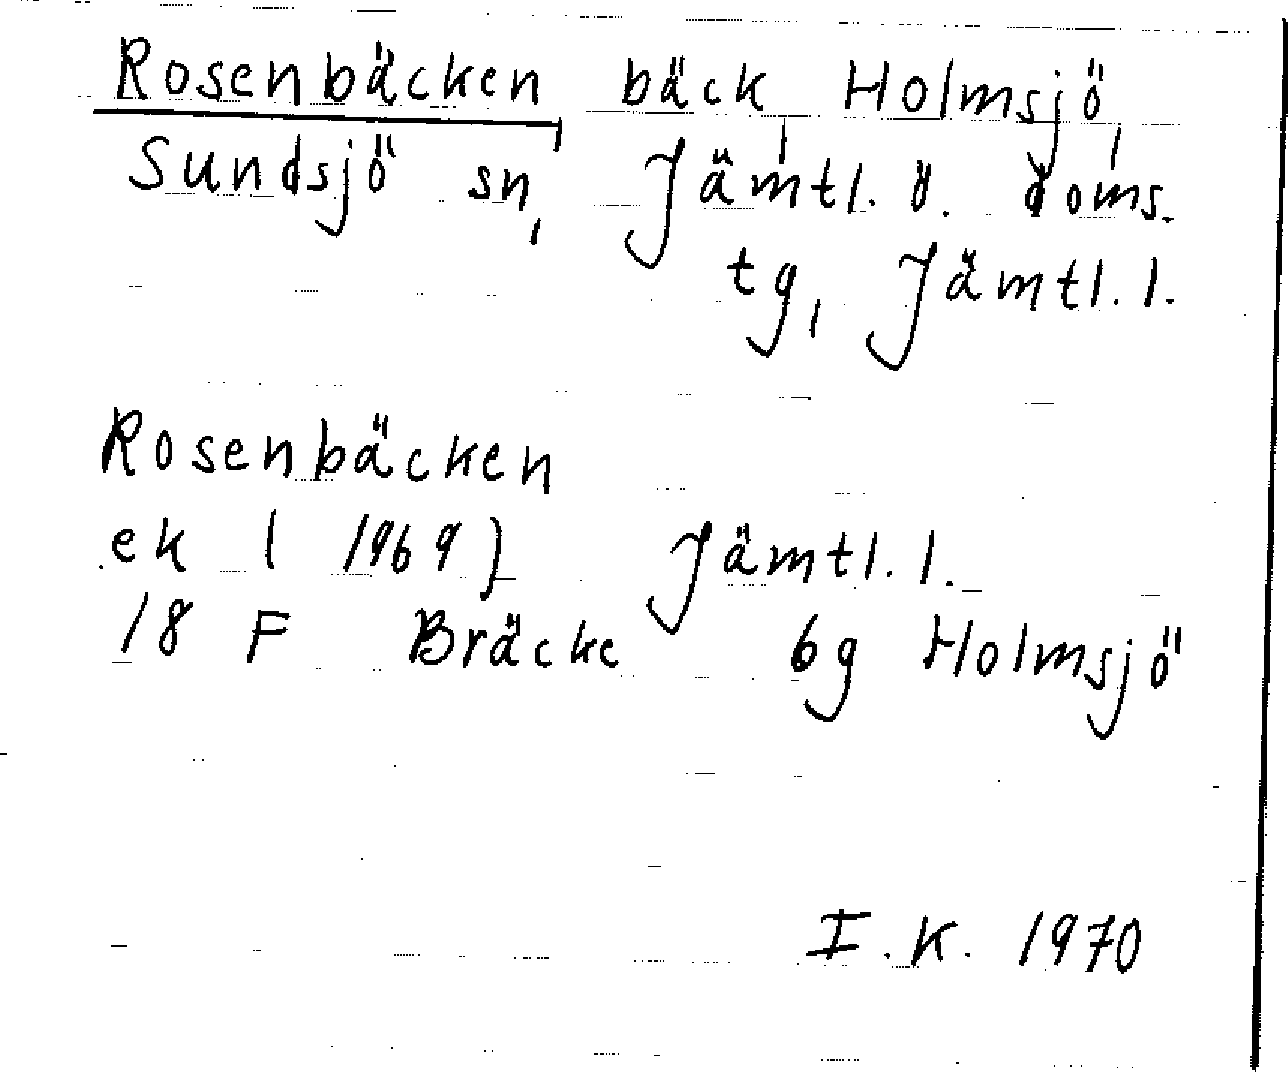 Rosenbäcken, bäck, Holmsjö,
Sundsjö sn, Jämtl. ö. doms.
tg, Jämtl. l.
Rosenbäcken
ek ( 1969) Jämtl. l.
18 F Bräcke 6g Holmsjö
I.K. 1970